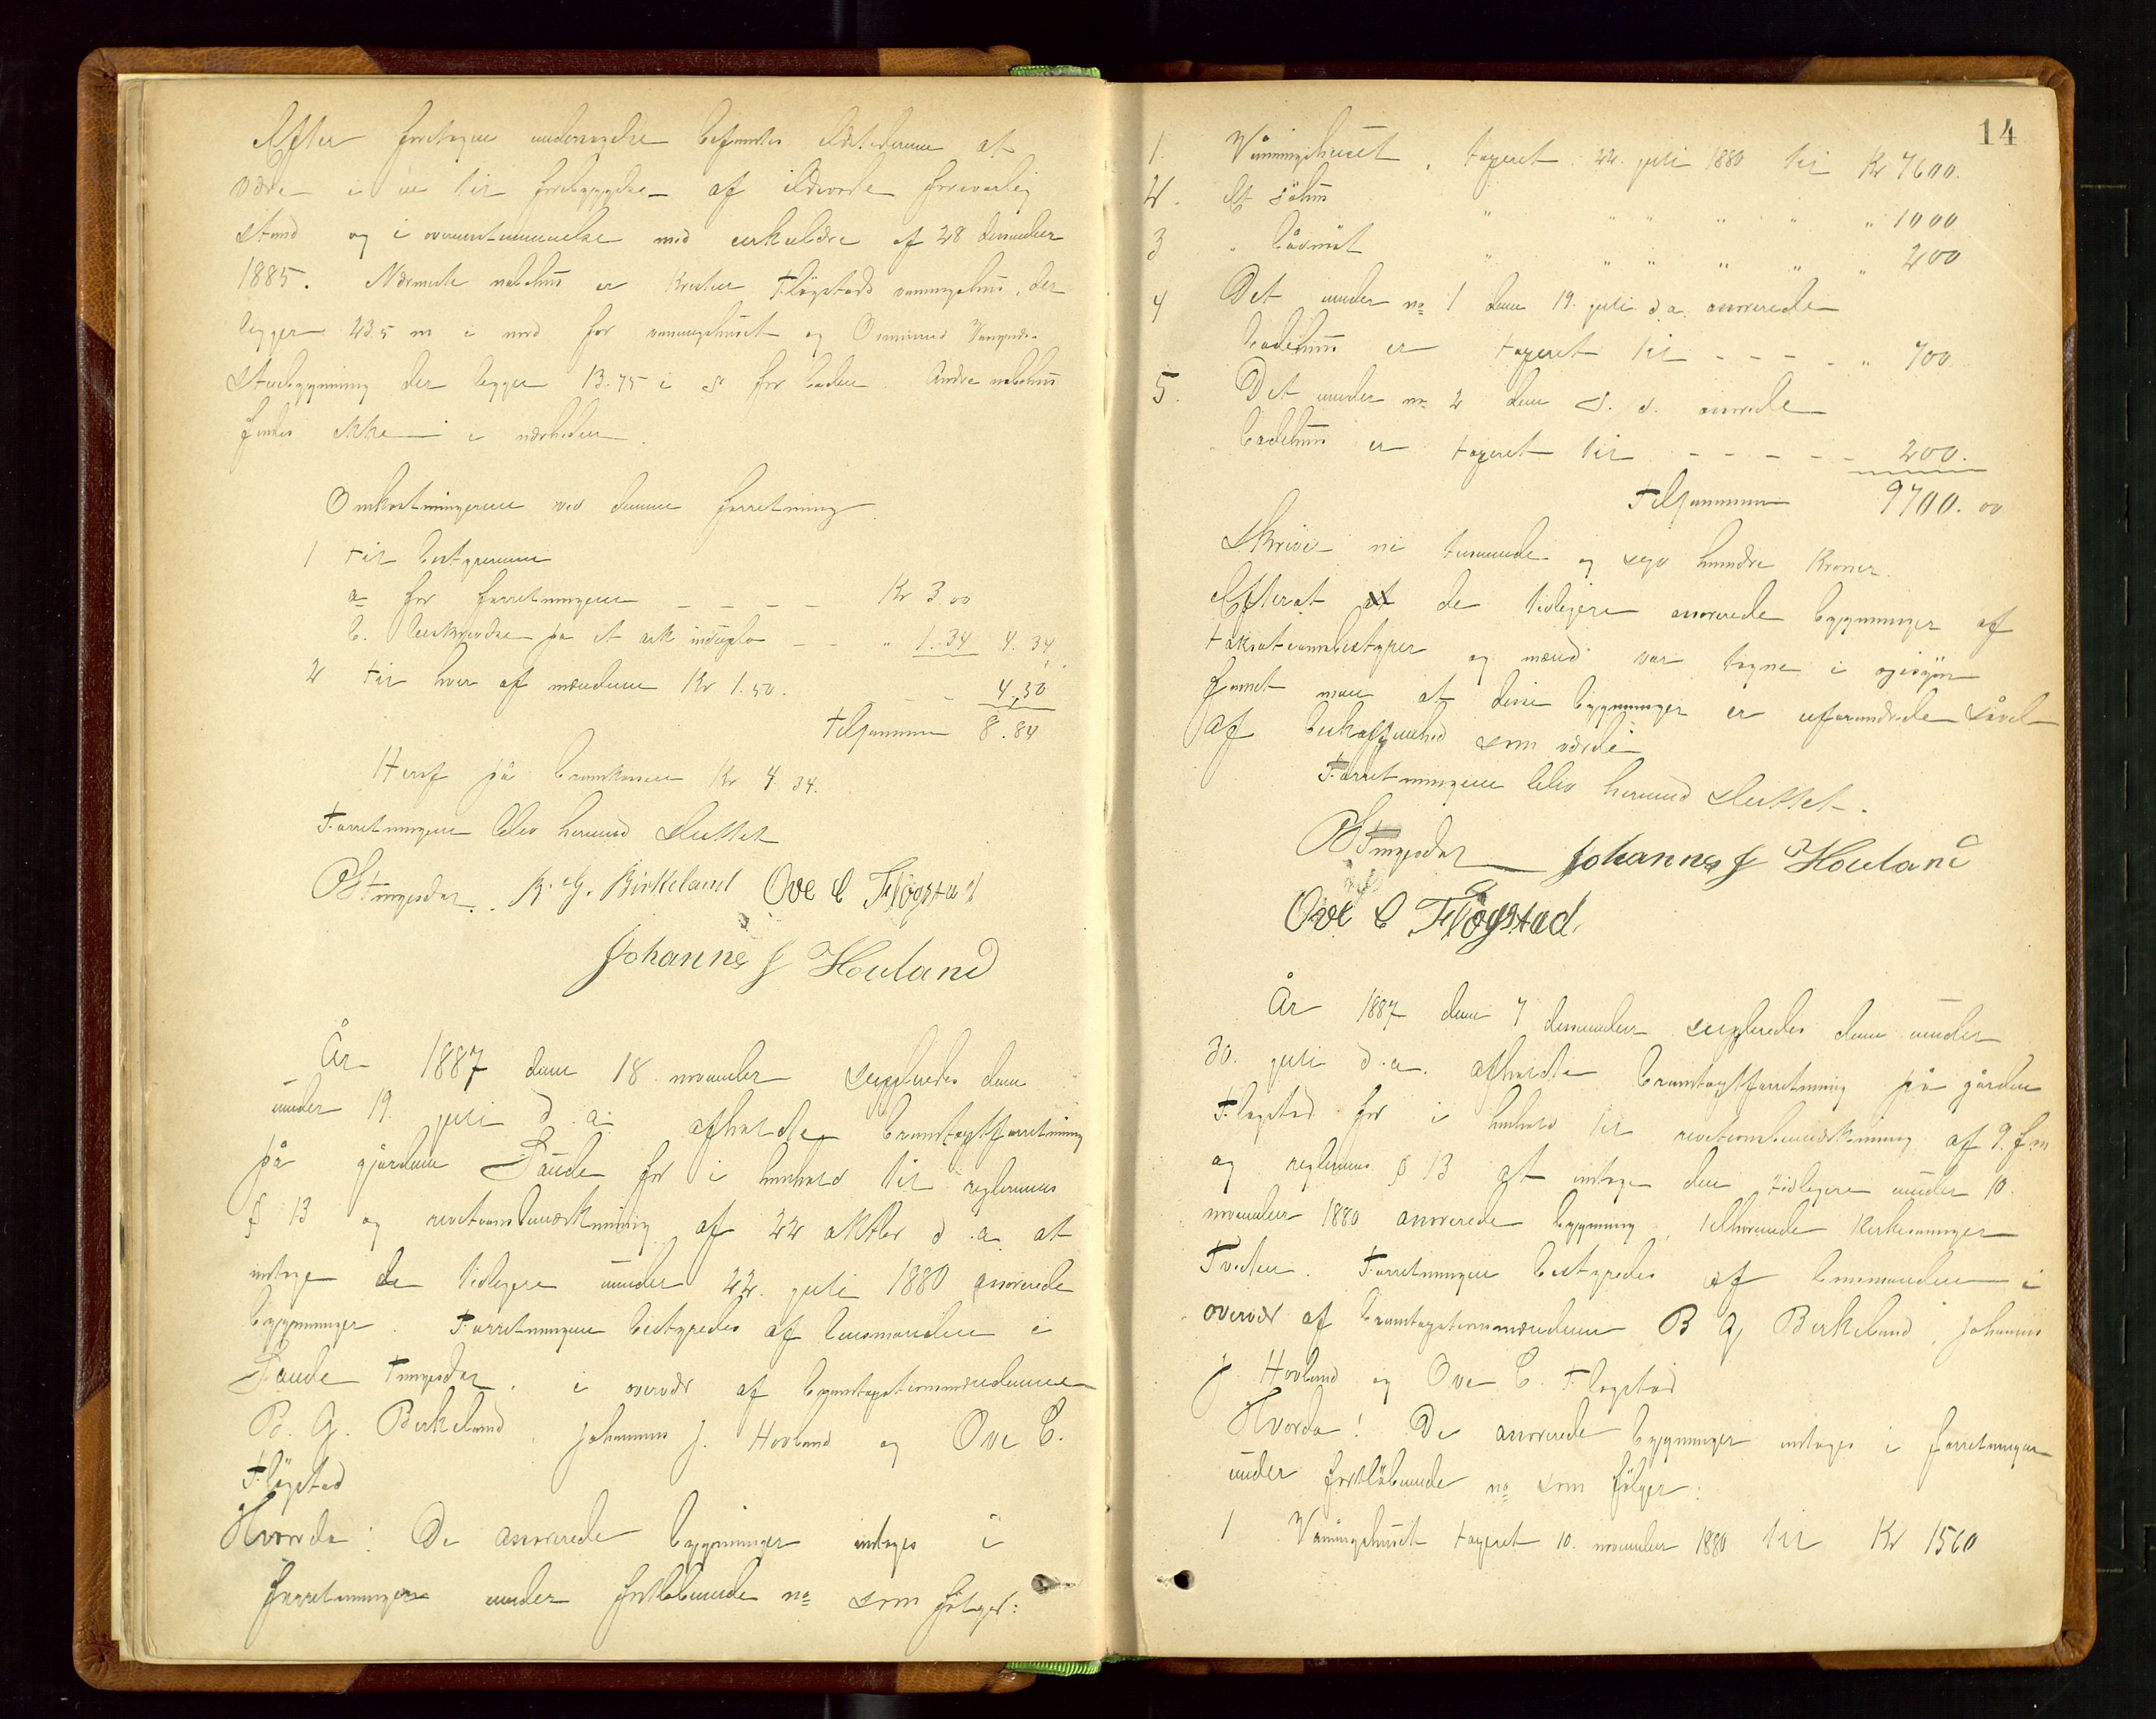 Efter foretagen undersøgelse befandtes ildstederne at
være i en til forebyggelse af ildsvaade forsvarlig
stand og i overenstemmelse med cirkulære af 28 desember
1885. Nærmeste nabohus er Kristen Fløgstads vaaningshus, der
ligger 23.5 m i nord for vaningshuset og Osmund
stuebygning der ligger 13.75 i S for laden. Andre nabohus
findes ikke i nærheden.
Omkostningerne ved denne forretning
1 til bestyreren
a for forretningen - - - - Kr 3.00
b. beskrivelse på et ark induplo - - " 1.34 4.34
2 til hver af mændene Kr 1.50. - - 4,50
tilsammen 8.84
Heraf på brandkassen Kr 4.34.
Forretningen blev hermed sluttet
B. G. Birkeland Ove C Fløgstad
Johannes J Houland
År 1887 den 18 november supleredes den
under 19. juli d. a. afholdte brandtaxtforretning
på gjården Saude for i henhold til reglemens
§ 13 og revitionsbemærkning af 22 oktbr d. a. at
indtage de tidligere under 22. juli 1880 assurerede
bygninger. Forretningen bestyredes af lensmanden i
Saude i overvær af brandtaxtionsmændene
B. G. Birkeland, Johannes J. Hovland og Ove C.
Fløgstad
Hvorda: De assurerede bygninger indtages i
forretningen under fortløbende no som følger:
14
1. Våningshuset, taxeret 22. juli 1880 til Kr 7600.
2. Et söhus " " " " " " 1000
3 " bådnöst " " " " " " 200
4 Det under no 1 den 19. juli d. a. assurerede
ladehus er taxeret til - - - - - " 700
5. Det under no 2 den s. d. assurede
ladehus er taxeret til - - - - - 200.
Tilsammen 9700.00
Skriver ni tusende og syv hundre kroner.
Efterat at de tidligere assurerede bygninger af
takstationsbestyrer og mænd var tagne i øiesyn
fandt man at disse bygninger er uforandrede såvel
af beskaffenhed som værdi
Forretningen blev hermed sluttet.
Johannes J Houland
Ove C Fløgstad.
År 1887 den 7 desember supleredes den under
30. juli d. a. afholdte brandtaxtforretning på gården
Fløgstad for i henhold til revitionsbemærkning af 9. f.m
og reglemens § 13 at indtage den tidligere under 10.
november 1880 assurerede bygning, tilhørende kirkesanger
Tveden. Forretningen bestyredes af lensmanden i
overvær af brandtaxtionsmændene B G Birkeland, Johannes
J. Hovland og Ove C. Fløgstad
Hvorda! De assurerede bygninger indtages i forretningen
under fortløbende no som følger:
1 Vaningshuset taxeret 10. november 1880 til Kr 1560